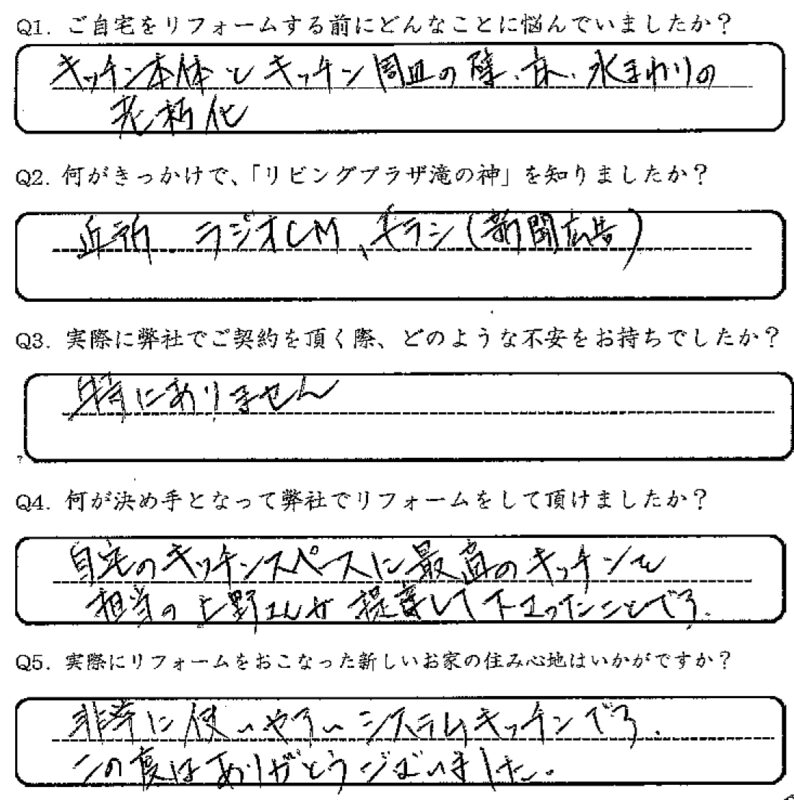 Q1. ご自宅をリフォームする前にどんなことに悩んでいましたか?
キッチン本体とキッチン周辺の壁、床、水まわりの
老朽化
Q2. 何がきっかけで、「リビングプラザ滝の神」を知りましたか?
近所、ラジオCM、チラシ(新聞広告)
Q3. 実際に弊社でご契約を頂く際、どのような不安をお持ちでしたか?
特にありません
?
Q4. 何が決め手となって弊社でリフォームをして頂けましたか?
自宅のキッチンスペースに最適のキッチンを
担当の上野さんが提案して下さったことです。
Q5. 実際にリフォームをおこなった新しいお家の住み心地はいかがですか?
非常に使いやすいシステムキッチンです。
この度はありがとうございました。